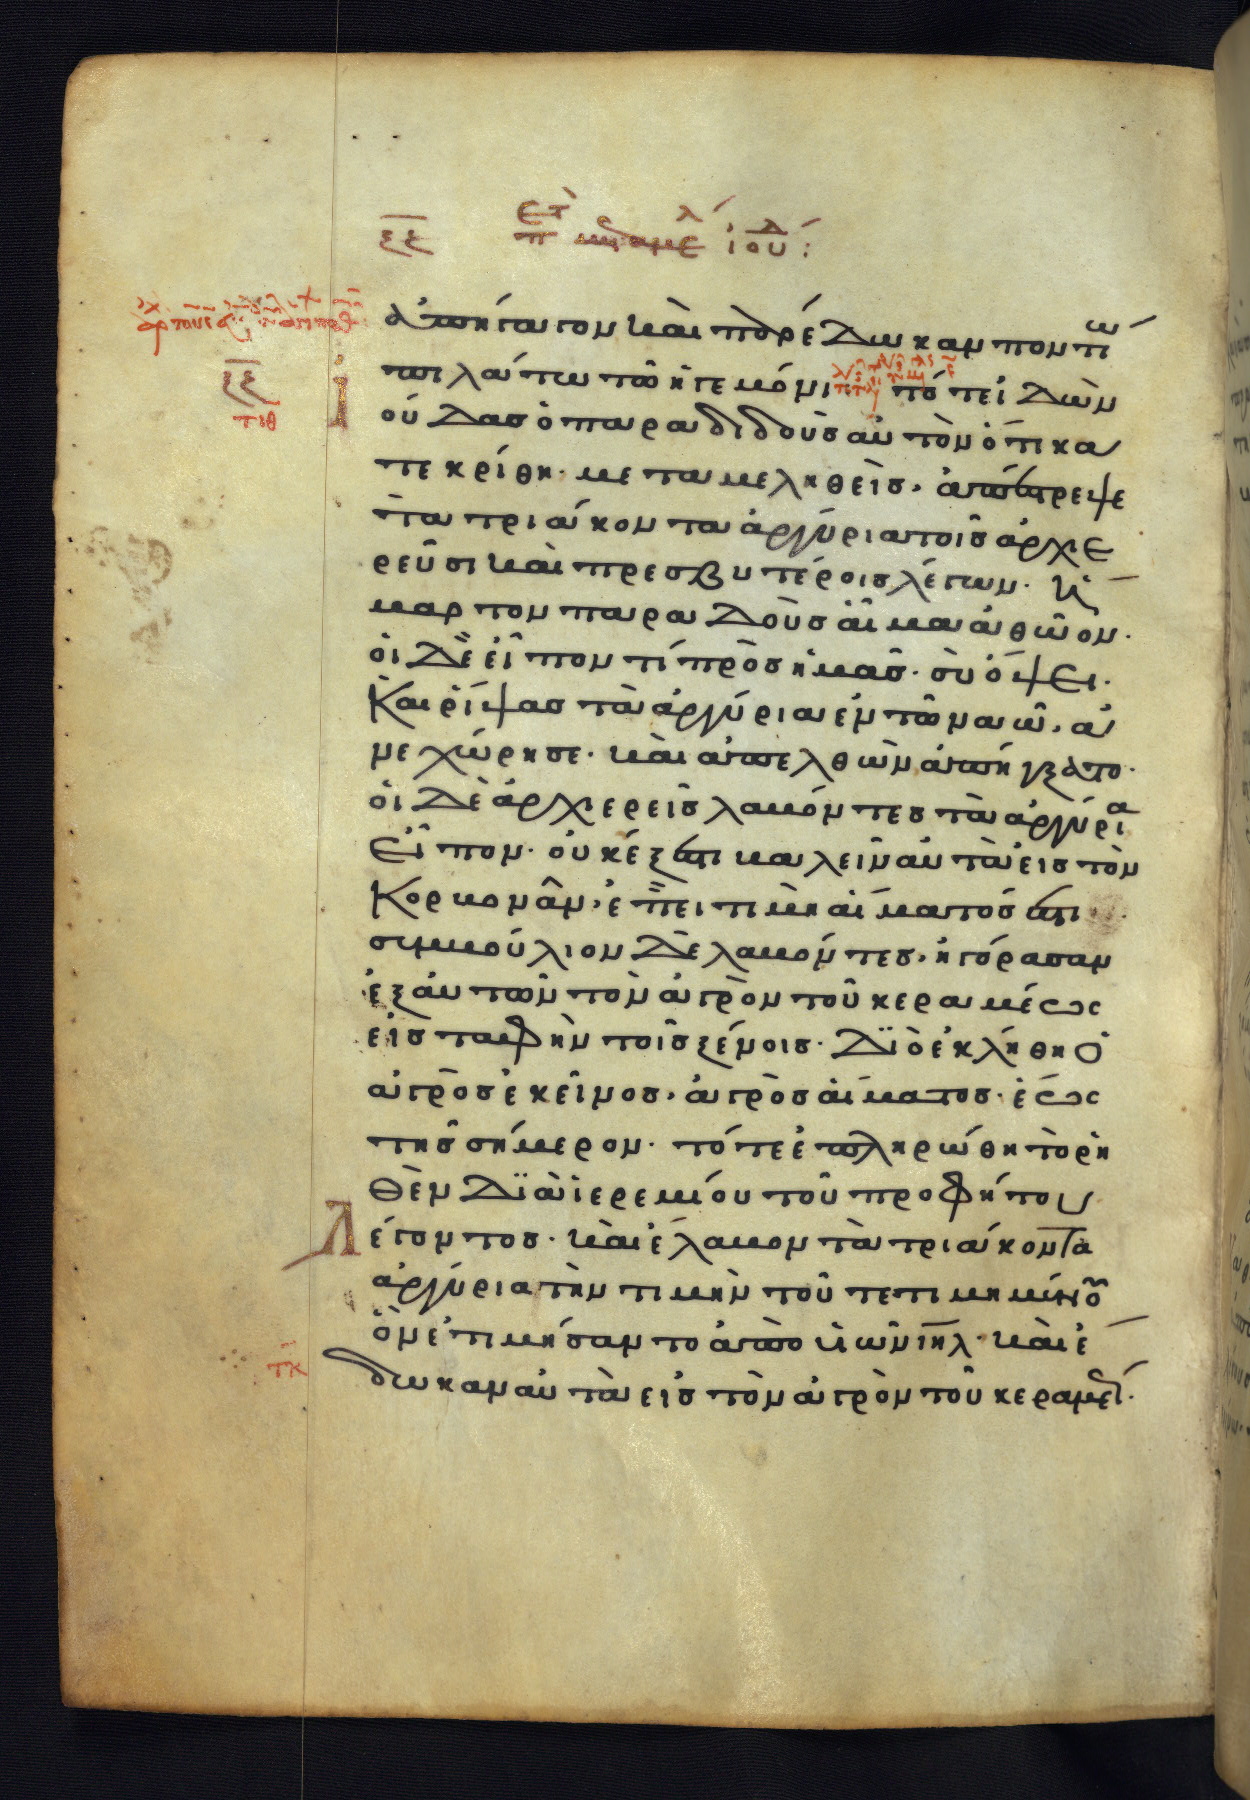 ξξ περὶ τῆς μεταμελείας ἰούδα:
ἀπήγαγον καὶ παρέδωκαν ποντίω
πιλάτω τῶ ἡγεμόνι τότε ἰδὼν
ξξ
τιθ
ἰούδας ὁ παραδιδοὺς αὐτὸν ὅτι κα
τεκρίθη· μεταμεληθεὶς, ἀπέστρεψε
τὰ τριάκοντα ἀργύρια τοῖς ἀρχιε
ρεῦσι καὶ πρεσβυτέροις λέγων· ἥ
μαρτον παραδοὺς αἷμα ἀθῶον·
οἱ δὲ εἶπον τί πρὸς ἡμᾶς· σὺ ὄψει·
Καὶ ῥίψας τὰ ἀργύρια ἐν τῶ ναῶ, ἀ
νεχώρησε· καὶ ἀπελθὼν ἀπήγξατο·
οἱ δὲ ἀρχιερεῖς λαβόντες τὰ ἀργύρια
Εἶπον· οὐκ έξεστι βαλεῖν αὐτὰ εἰς τὸν
Κορβονᾶν, ἐπεὶ τιμὴ αἵματός ἐστι·
συμβούλιον δὲ λαβόντες, ἠγόρασαν
ἐξ αὐτῶν τὸν ἀγρὸν τοῦ κεραμέως
εἰς ταφὴν τοῖς ξένοις· Διὸ ἐκλήθη ὁ
ἀγρὸς ἐκεῖνος, ἀγρὸς αἵματος· ἕως
τῆς σήμερον· τότε ἐπληρώθη τὸ ῥη
θὲν Διὰ ἱερεμίου τοῦ προφήτου
Λέγοντος· καὶ ἔλαβον τὰ τριάκοντα
ἀργύρια τὴν τιμὴν τοῦ τετιμημένου
ὃν ἐτιμήσαντο ἀπὸ υἱῶν ιηλ· καὶ έ
τκ
δωκαν αὐτὰ εἰς τὸν ἀγρὸν τοῦ κεραμέ·